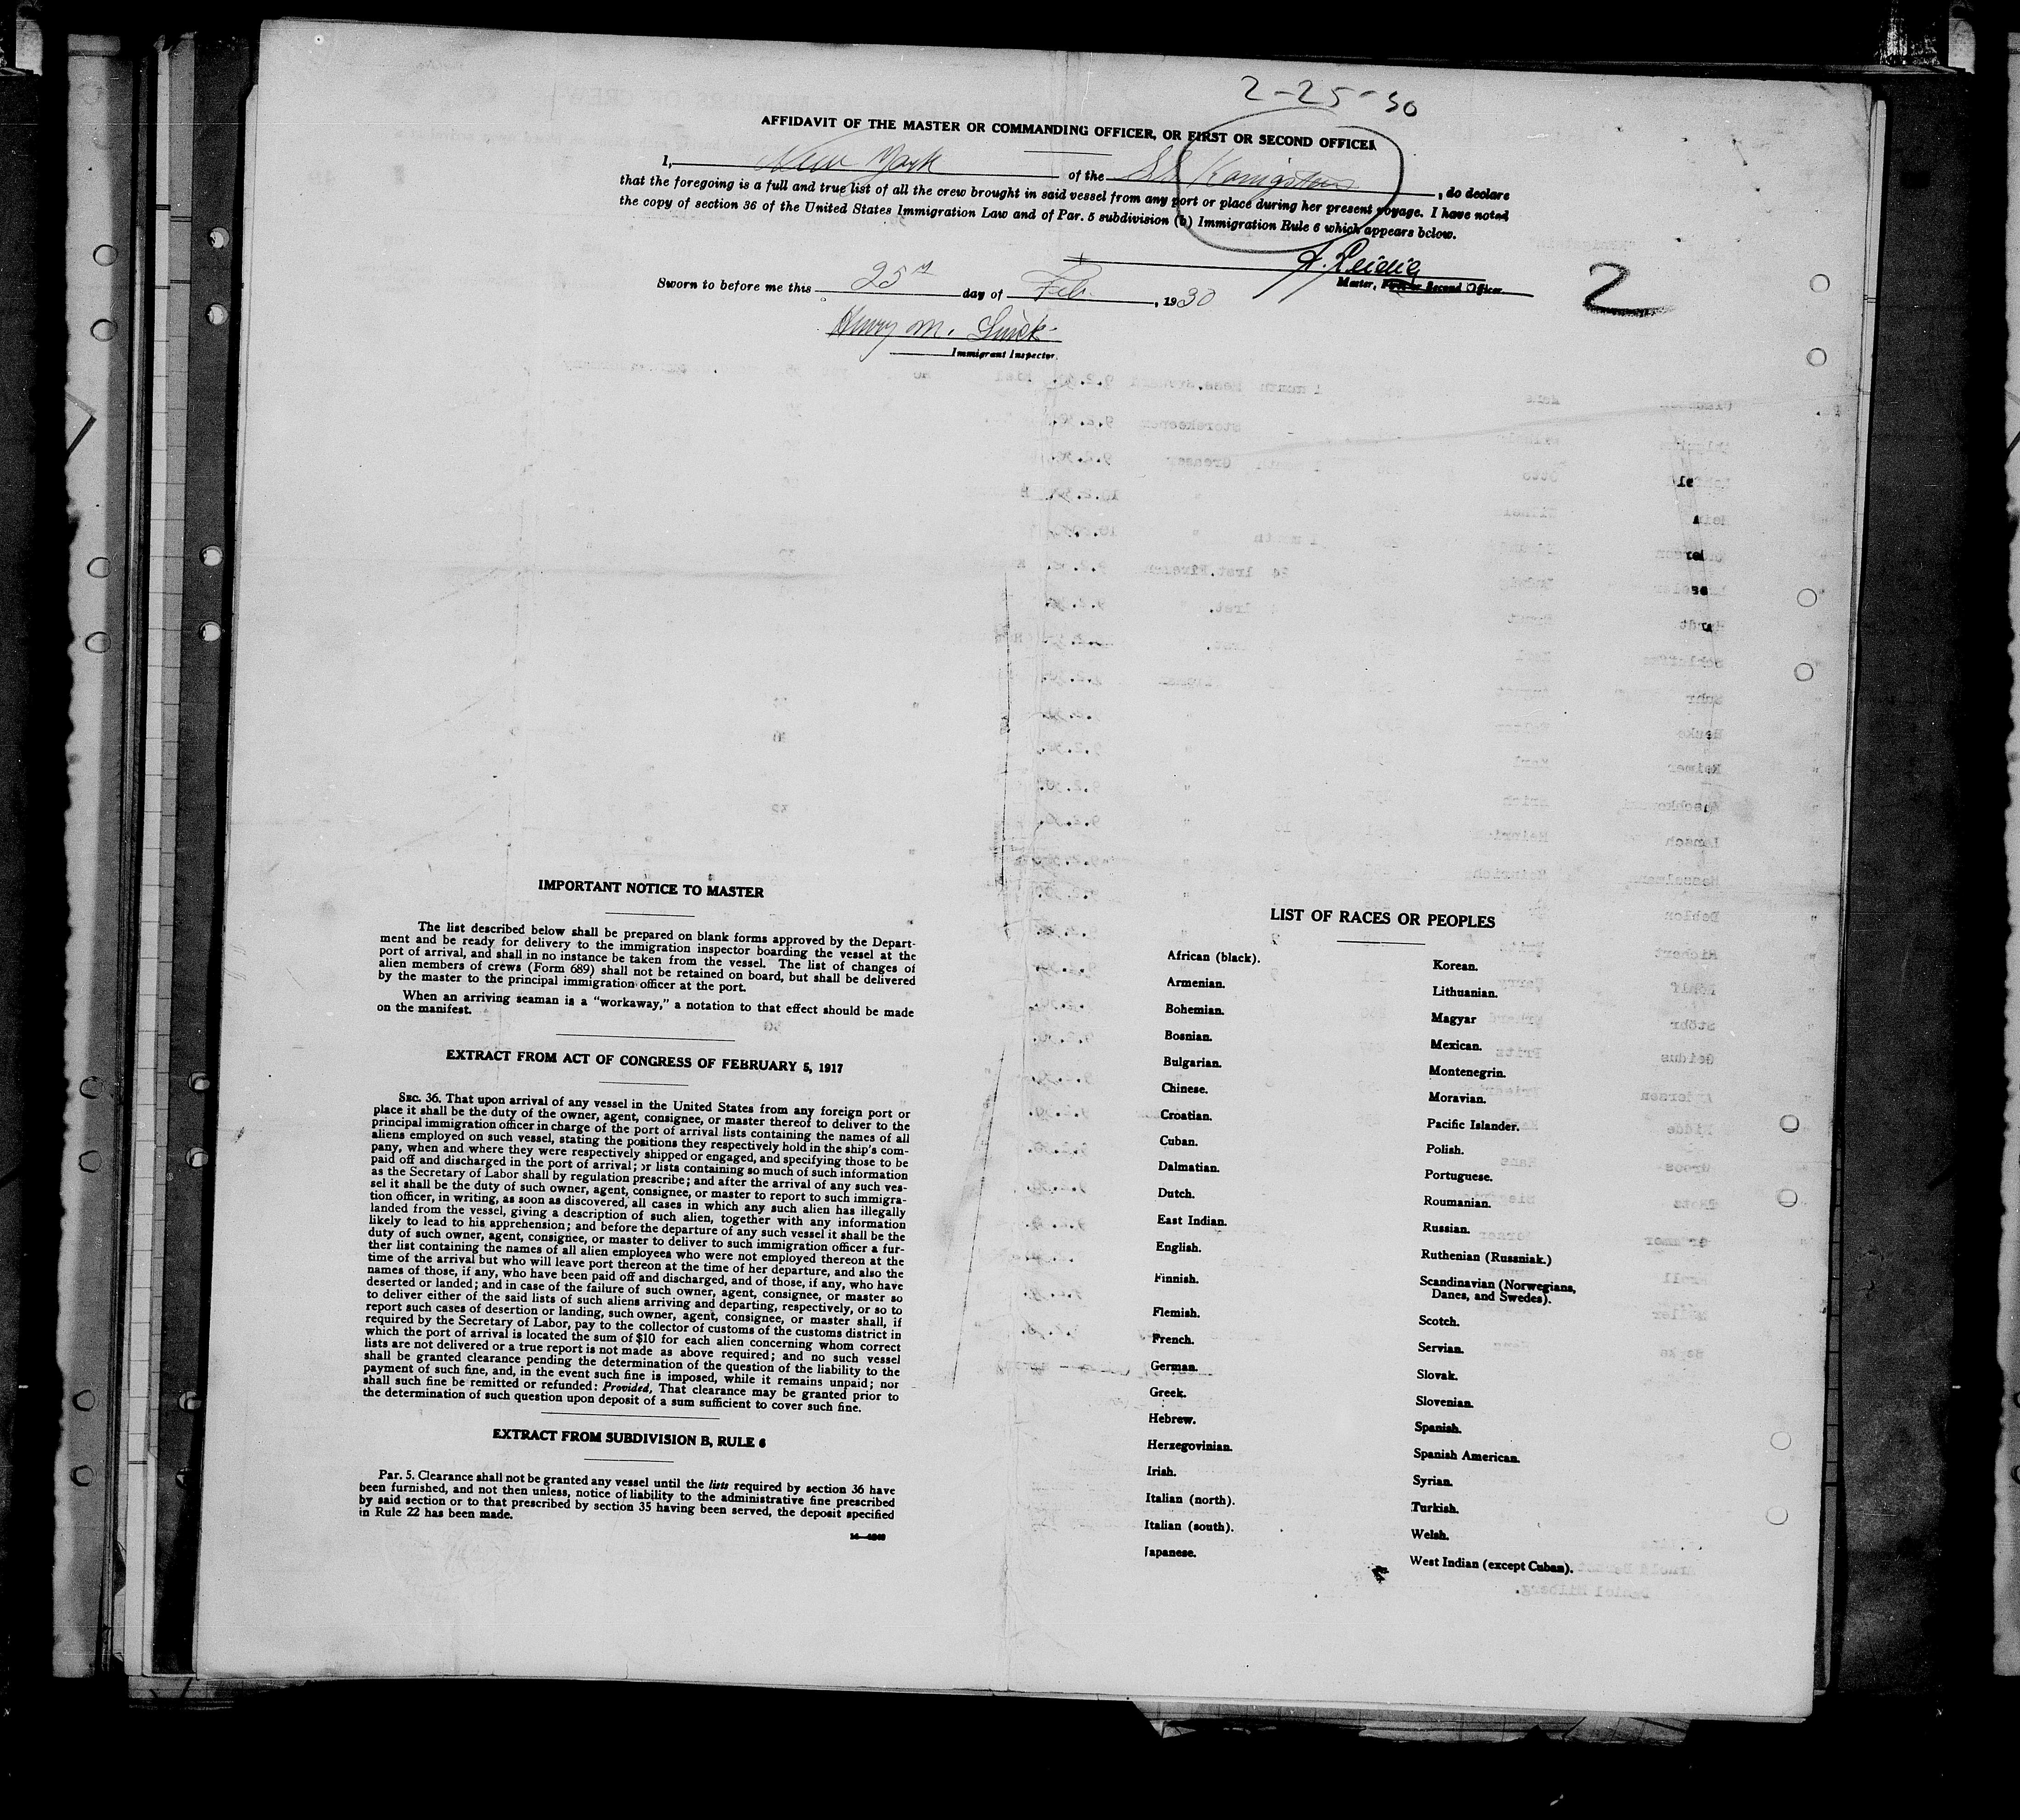 2-25-30
AFFIDAVIT OF THE MASTER OR COMMANDING OFFICER, OR FIRST OR SECOND OFFICER
I, New York of the S.S. Konigstein, do declare
that the foregoing is a full and true list of all the crew brought in said vessel from any port or place during her present voyage. I have noted
the copy of section 36 of the United States Immigration Law and of Par. 5 subdivision (b) Immigration Rule 6 which appears below.
Master, First or Second Officer.
2
Sworn to before me this 25th day of Feb., 1930
Henry M.
Immigrant Inspector.
IMPORTANT NOTICE TO MASTER
The list described below shall be prepared on blank forms approved by the Depart-
ment and be ready for delivery to the immigration inspector boarding the vessel at the
port of arrival, and shall in no instance be taken from the vessel. The list of changes of
alien members of crews (Form 689) shall not be retained on board, but shall be delivered
by the master to the principal immigration officer at the port.
When an arriving seaman is a "workaway," a notation to that effect should be made
on the manifest.
EXTRACT FROM ACT OF CONGRESS OF FEBRUARY 5, 1917
SEC. 36. That upon arrival of any vessel in the United States from any foreign port or
place it shall be the duty of the owner, agent, consignee, or master thereof to deliver to the
principal immigration officer in charge of the port of arrival lists containing the names of all
aliens employed on such vessel, stating the positions they respectively hold in the ship's com-
pany, when and where they were respectively shipped or engaged, and specifying those to be
paid off and discharged in the port of arrival; or lists containing so much of such information
as the Secretary of Labor shall by regulation prescribe; and after the arrival of any such ves-
sel it shall be the duty of such owner, agent, consignee, or master to report to such immigra-
tion officer, in writing, as soon as discovered, all cases in which any such alien has illegally
landed from the vessel, giving a description of such alien, together with any information
likely to lead to his apprehension; and before the departure of any such vessel it shall be the
duty of such owner, agent, consignee, or master to deliver to such immigration officer a fur-
ther list containing the names of all alien employees who were not employed thereon at the
time of the arrival but who will leave port thereon at the time of her departure, and also the
names of those, if any, who have been paid off and discharged, and of those, if any, who have
deserted or landed; and in case of the failure of such owner, agent, consignee, or master so
to deliver either of the said lists of such aliens arriving and departing, respectively, or so to
report such cases of desertion or landing, such owner, agent, consignee, or master shall, if
required by the Secretary of Labor, pay to the collector of customs of the customs district in
which the port of arrival is located the sum of $10 for each alien concerning whom correct
lists are not delivered or a true report is not made as above required; and no such vessel
shall be granted clearance pending the determination of the question of the liability to the
payment of such fine, and, in the event such fine is imposed, while it remains unpaid; nor
shall such fine be remitted or refunded: Provided, That clearance may be granted prior to
the determination of such question upon deposit of a sum sufficient to cover such fine.
EXTRACT FROM SUBDIVISION B, RULE 6
Par. 5. Clearance shall not be granted any vessel until the lists required by section 36 have
been furnished, and not then unless, notice of liability to the administrative fine prescribed
by said section or to that prescribed by section 35 having been served, the deposit specified
in Rule 22 has been made.
LIST OF RACES OR PEOPLES
African (black).
Armenian.
Bohemian.
Bosnian.
Bulgarian.
Chinese.
Croatian.
Cuban.
Dalmatian.
Dutch.
East Indian.
English.
Finnish.
Flemish.
French.
German.
Greek.
Hebrew.
Herzegovinian.
Irish.
Italian (north).
Italian (south).
Japanese.
Korean.
Lithuanian.
Magyar
Mexican.
Montenegrin.
Moravian.
Pacific Islander.
Polish.
Portuguese.
Roumanian.
Russian.
Ruthenian (Russniak.)
Scandinavian (Norwegians,
Danes, and Swedes).
Scotch.
Servian.
Slovak.
Slovenian.
Spanish.
Spanish American.
Syrian.
Turkish.
Welsh.
West Indian (except Cuban).